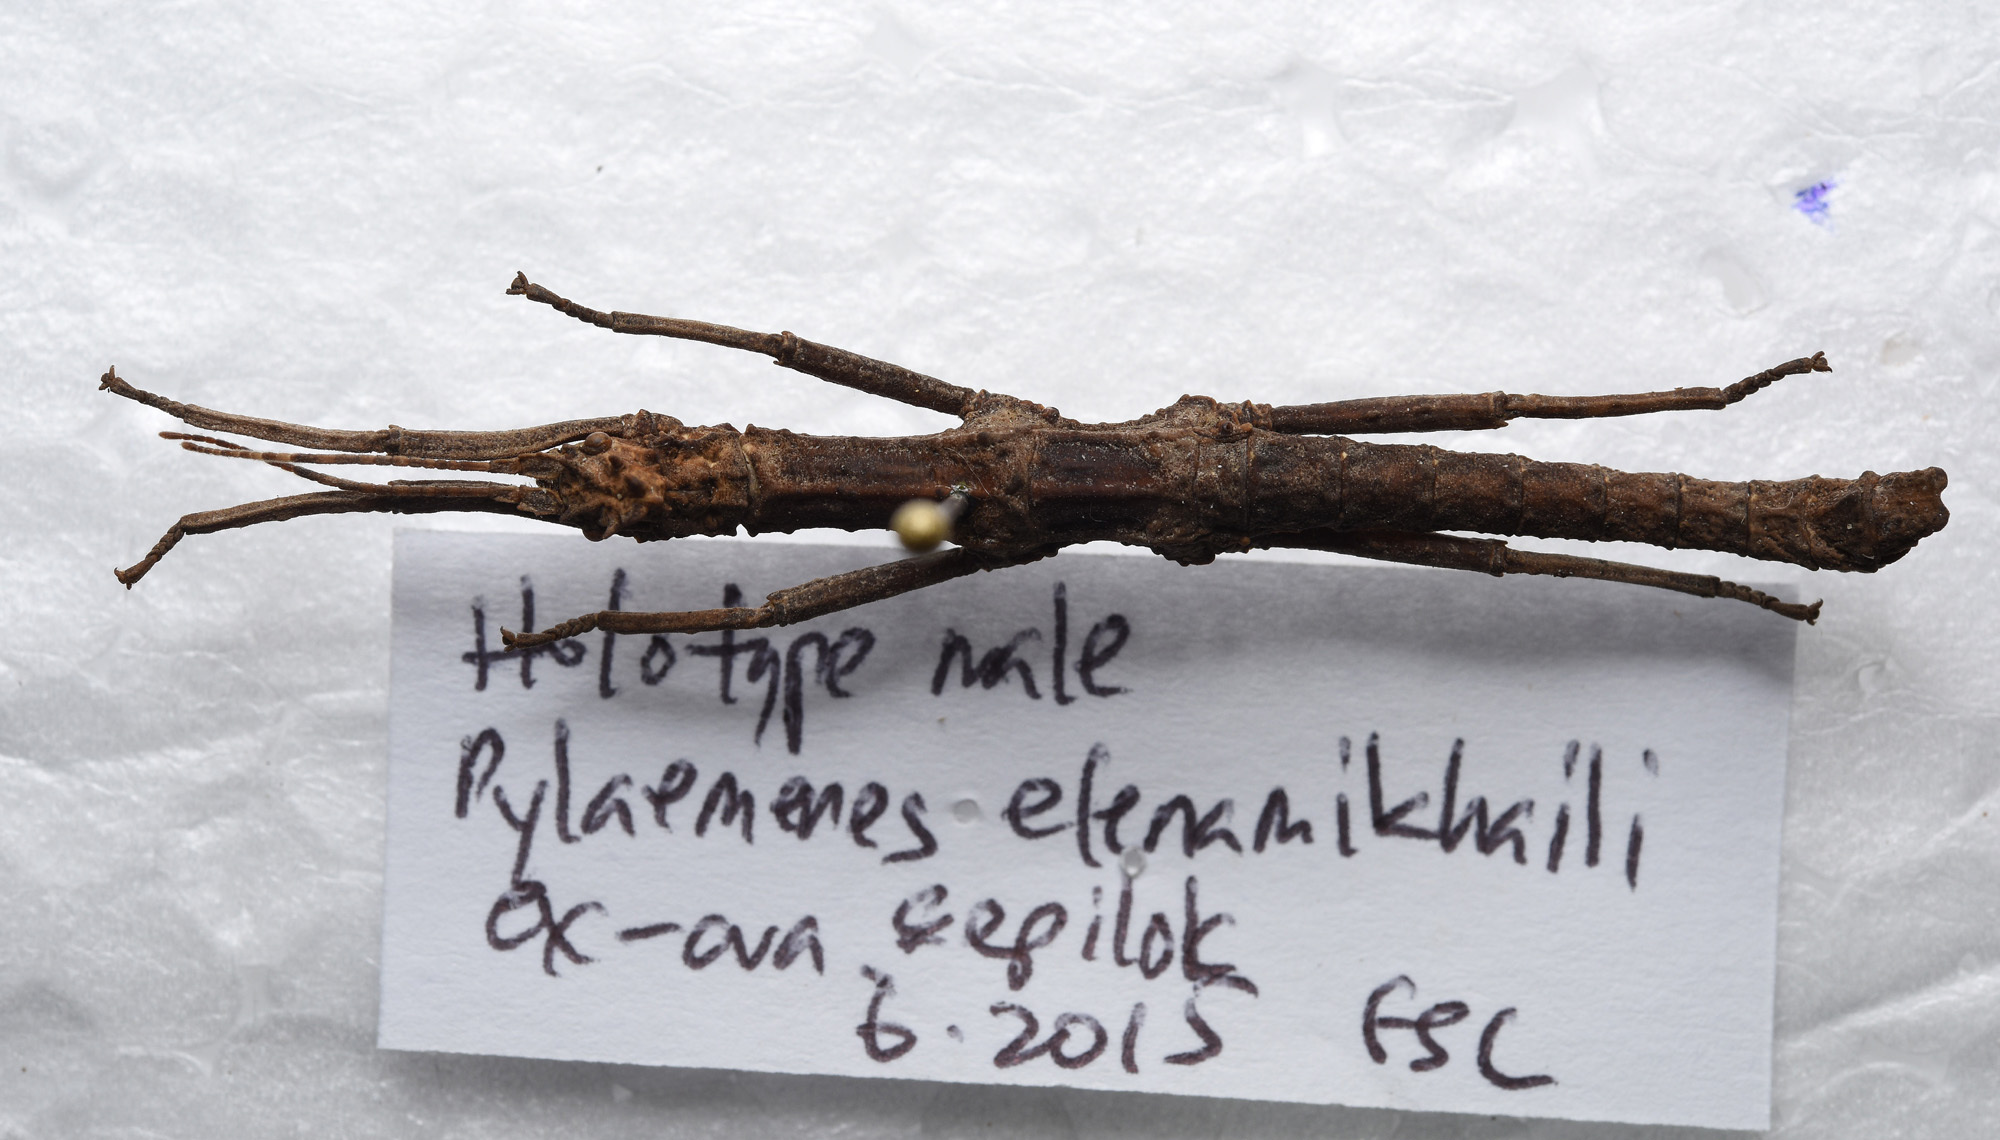 Holotype male
Pylaemenes elenamikhaili
ex-ova sepilok
6.2015 FSC